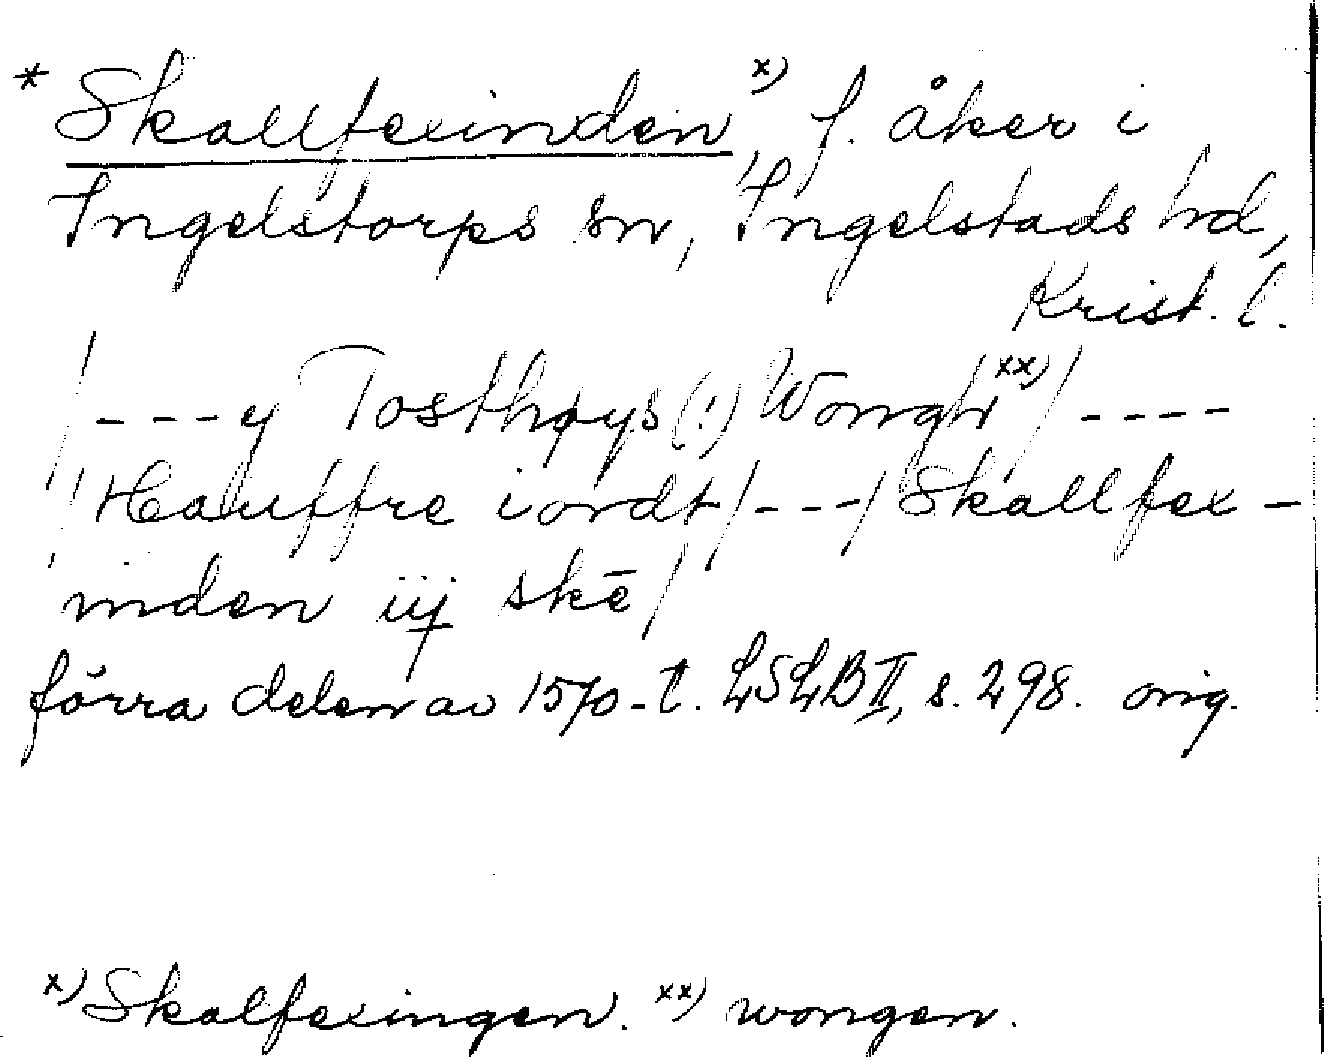 * Skallfexinden x), f. åker i
Ingelstorps sn, Ingelstads hd,
Krist. l.
/---y Tosthøys (!) Wongh xx) / ----
Hauffre iordt / --- / Skallfex-
inden iij skē /
förra delen av 1570-t. LSLB II, s. 298. orig.
x) Skalfexingen. xx) wongen.